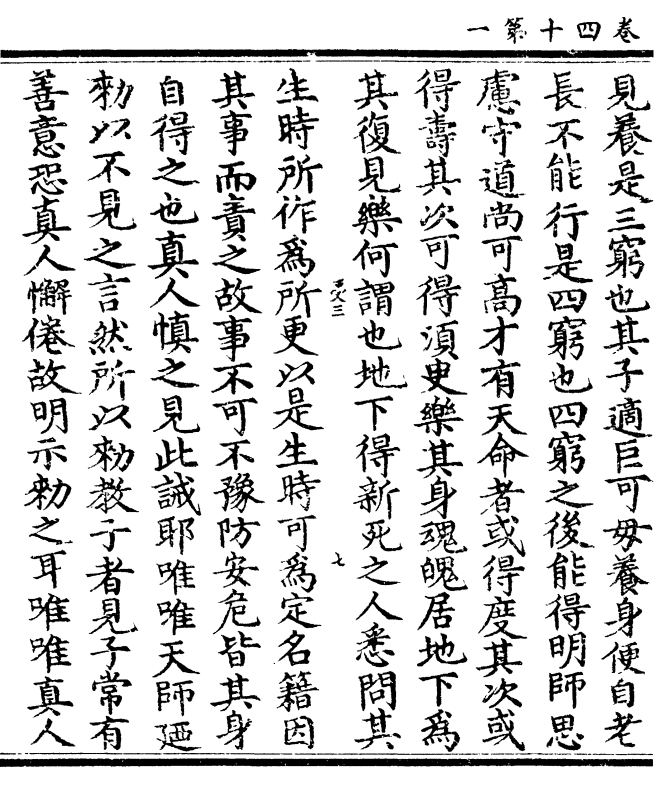 卷四十第一
見養是三窮也其子適巨可毋養身便自老
長不能行是四窮也四窮之後能得明師思
慮守道尚可高才有天命者或得度其次或
得壽其次可得須臾樂其身魂魄居地下為
其復見樂何謂也地下得新死之人悉問其
七
生時所作為所更以是生時可為定名籍因
其事而責之故事不可不豫防安危皆其身
自得之也真人慎之見此誡耶唯唯天師廼
勑以不見之言然所以勑教子者見子常有
善意恐真人懈倦故明示勑之耳唯唯真人